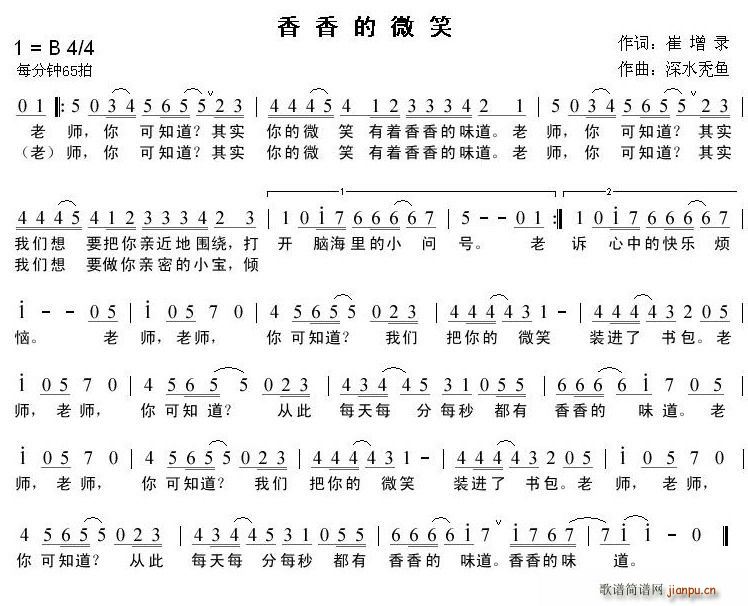 香香的微笑
1 = B 4/4
作词：崔增录
每分钟65拍
作曲：深水秃鱼
0 1 ‖: 5 0 3 4 5 6 5 5 ˅ 2 3 | 4 4 4 5 4 1 2 3 3 3 4 2 1 | 5 0 3 4 5 6 5 5 ˅ 2 3 |
老 师，你 可知道？其实 你的微 笑 有着香香的味道。老 师，你 可知道？其实
（老）师，你 可知道？其实 你的微 笑 有着香香的味道。老 师，你 可知道？其实
1 2
4 4 4 5 4 1 2 3 3 3 4 2 3 | 1 0 i 7 6 6 6 6 7 | 5 - - 0 1 :‖ 1 0 i 7 6 6 6 6 6 7 |
我们想 要把你亲近地围绕，打 开 脑海里的小 问 号。 老 诉 心中的快乐 烦
我们想 要做你亲密的小宝，倾
i - - 0 5 | i 0 5 7 0 | 4 5 6 5 5 0 2 3 | 4 4 4 4 3 1 - | 4 4 4 4 3 2 0 5 |
恼。 老 师，老师， 你 可知道？ 我们 把你的 微笑 装进了 书包。老
i 0 5 7 0 | 4 5 6 5 5 0 2 3 | 4 3 4 4 5 3 1 0 5 5 | 6 6 6 6 i 7 0 5 |
师，老师， 你 可知 道？ 从此 每天每 分每秒 都有 香香的 味道。老
i 0 5 7 0 | 4 5 6 5 5 0 2 3 | 4 4 4 4 3 1 - | 4 4 4 4 3 2 0 5 | i 0 5 7 0 |
师，老师， 你 可知道？ 我们 把你的 微笑 装进了 书包。老 师，老师，
4 5 6 5 5 0 2 3 | 4 3 4 4 5 3 1 0 5 5 | 6 6 6 6 i 7 ˅ | i 7 6 7 7 6 7 | i - - 0 ‖
你 可知道？ 从此 每天每 分每秒 都有 香香的 味道。香香的味 道。
歌谱简谱网
jianpu.cn